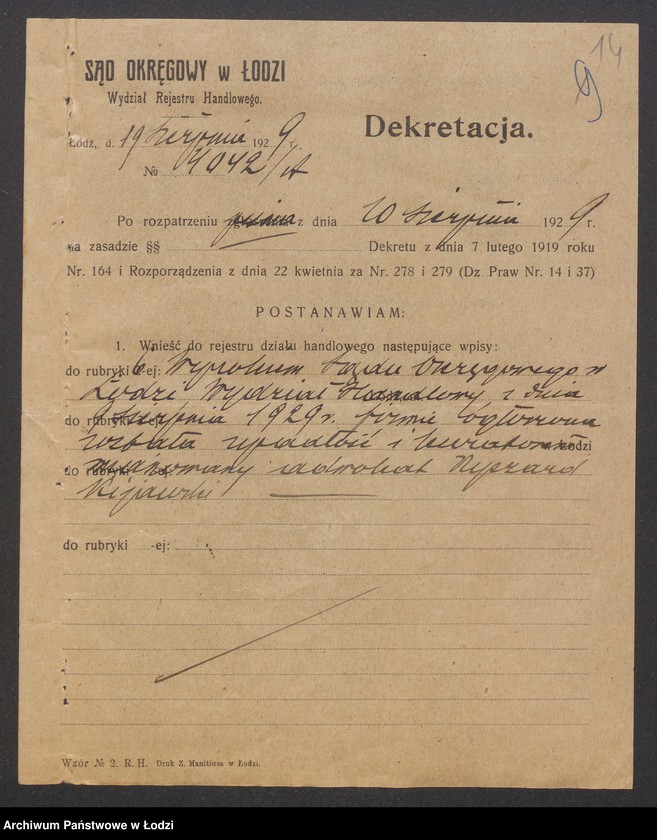 14
9
SĄD OKRĘGOWY w ŁODZI
Wydział Rejestru Handlowego.
Dekretacja.
Łódź, d. 19 sierpnia 1929 r.
№ 4042/A
Po rozpatrzeniu z dnia 10 sierpnia 1929 r.
na zasadzie §§ Dekretu z dnia 7 lutego 1919 roku
Nr. 164 i Rozporządzenia z dnia 22 kwietnia za Nr. 278 i 279 (Dz Praw Nr. 14 i 37)
POSTANAWIAM:
1. Wnieść do rejestru działu handlowego następujące wpisy:
do rubryki 6 -ej: Wyrokiem Sądu Okręgowego w
Łodzi Wydział Handlowy z dnia
do rubryki sierpnia 1929 r. firmie ogłoszona
została upadłość i kuratorem
w Łodzi
do rubryki -ej: mianowany adwokat Ryszard
Kijawski
do rubryki -ej:
Wzór № 2. R. H. Druk Z. Manitiusa w Łodzi.
Archiwum Państwowe w Łodzi